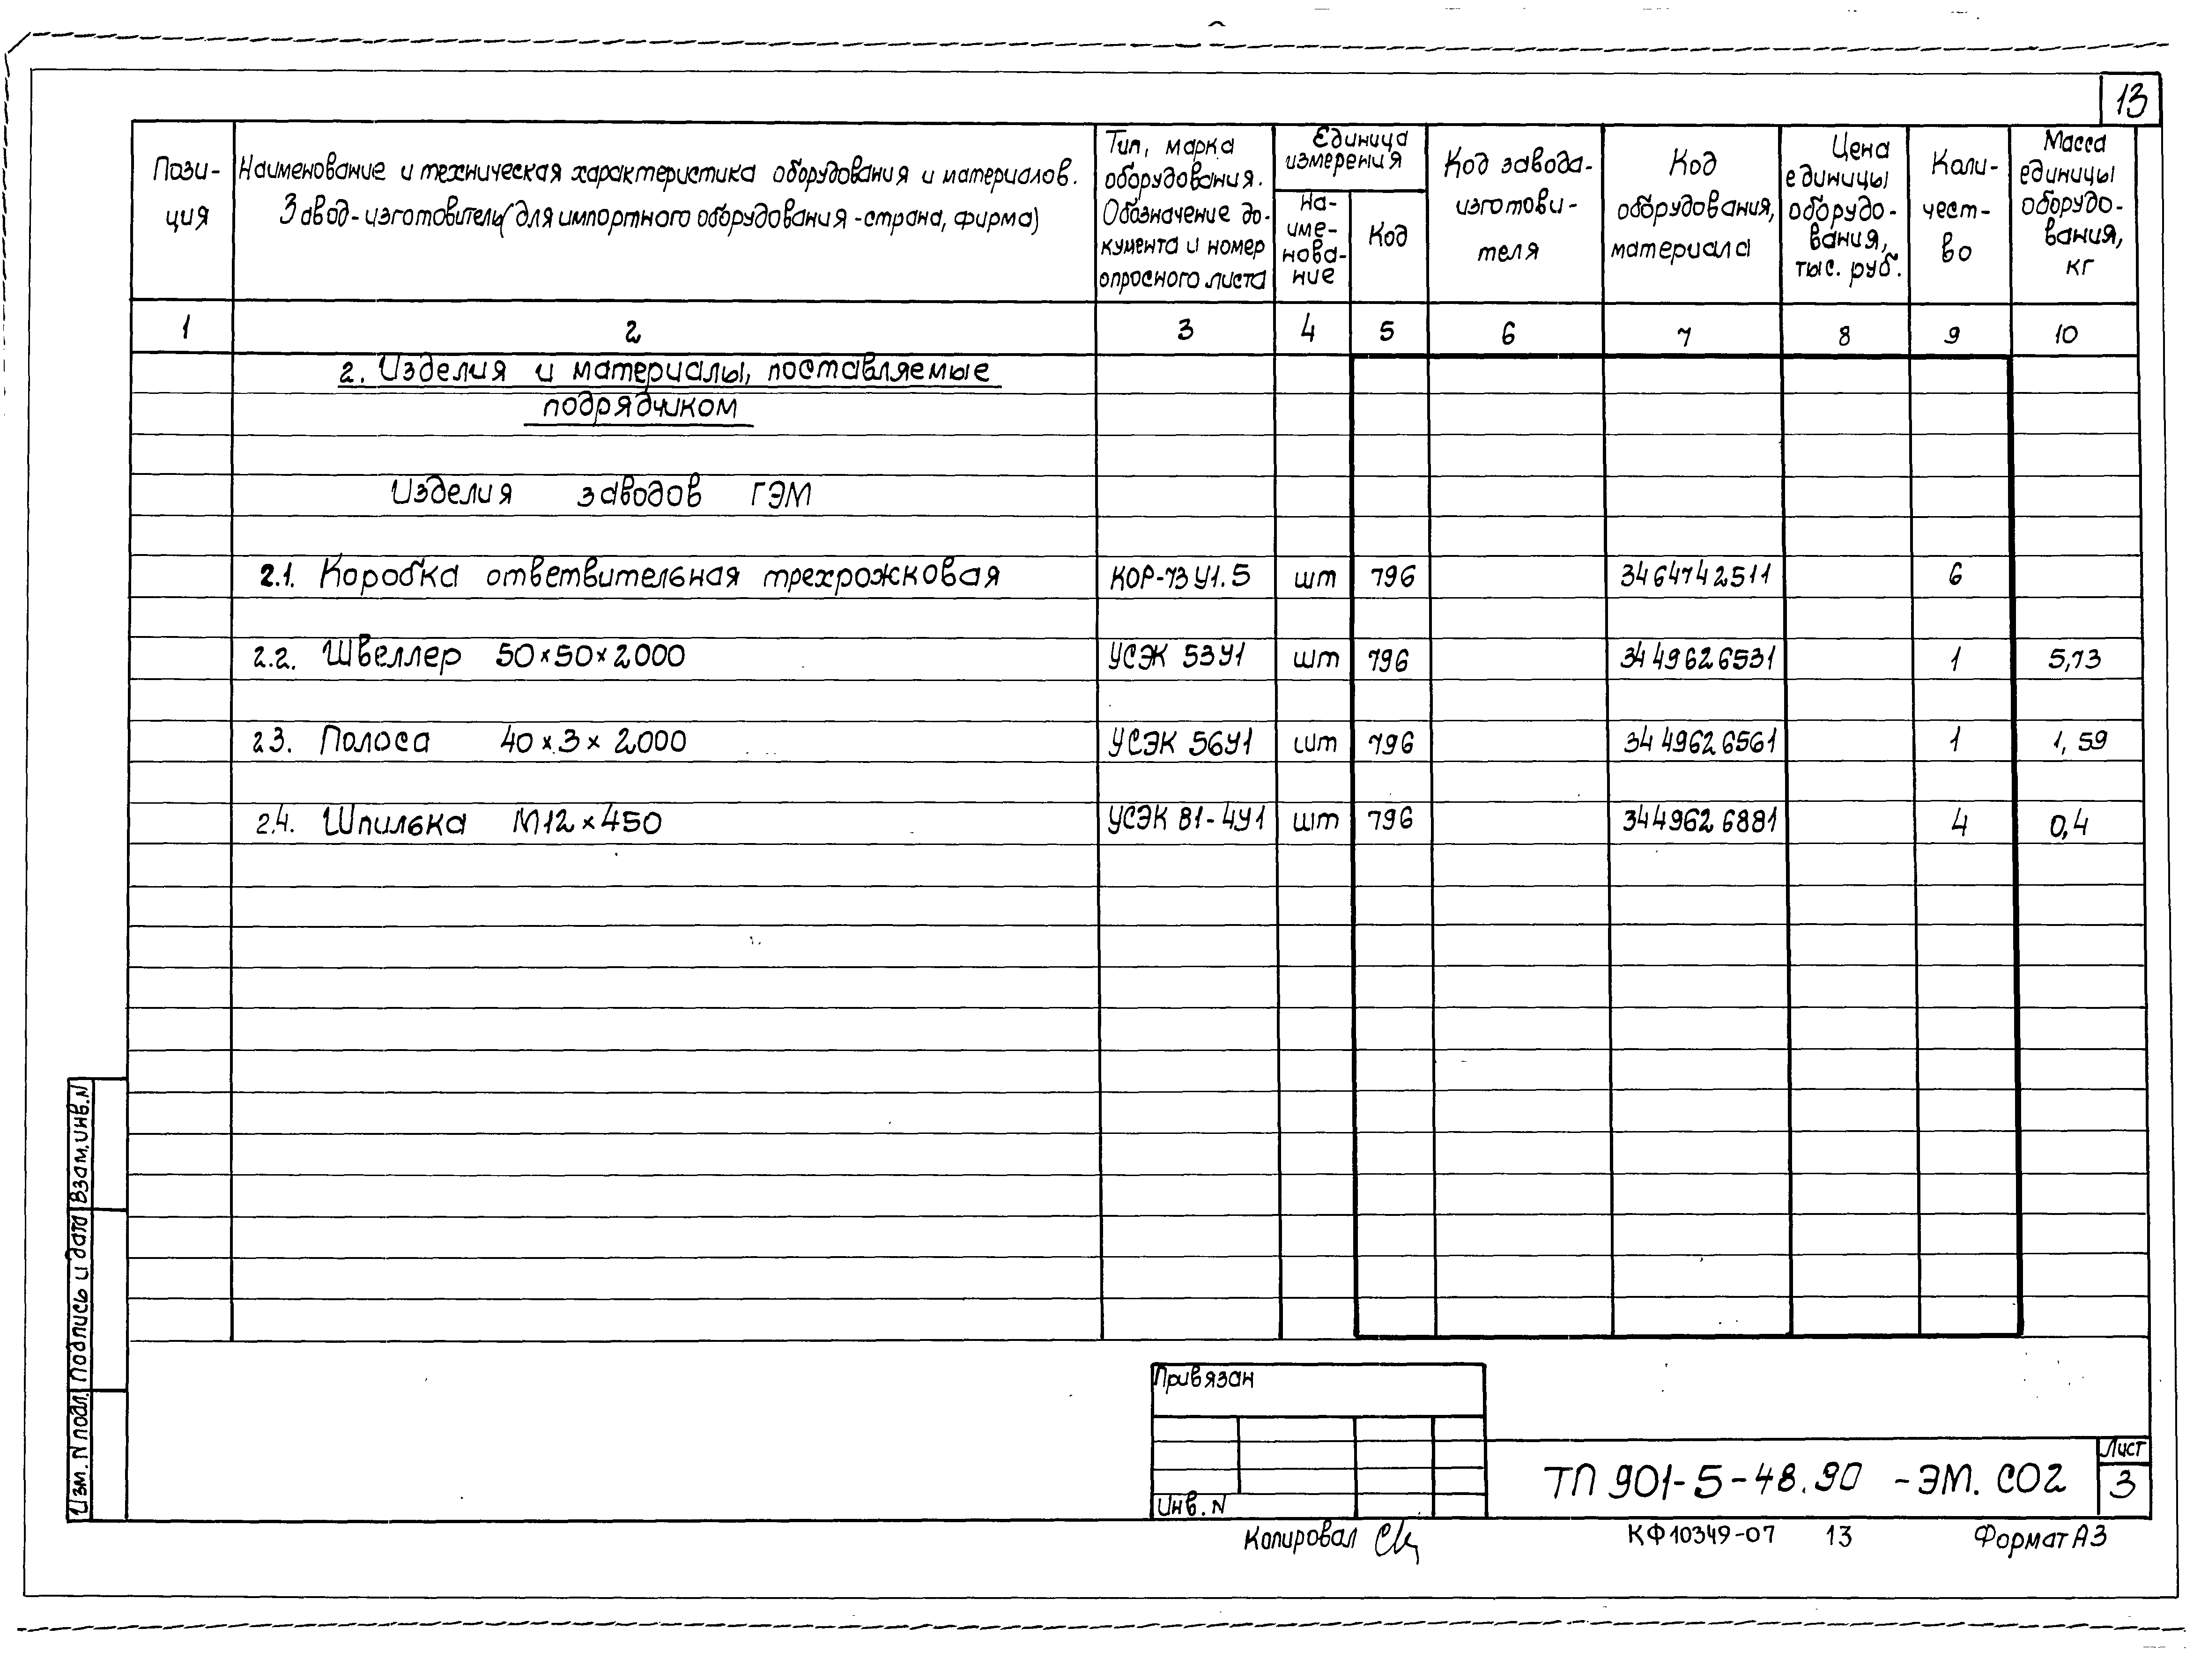 13
Пози-
ция
Наименование и техническая характеристика оборудования и материалов.
Завод-изготовитель (для импортного оборудования - страна, фирма)
Тип, марка
оборудования.
Обозначение до-
кумента и номер
опросного листа
Единица
измерения
На-
име-
нова-
ние
Код
Код завода-
изготови-
теля
Код
оборудования,
материала
Цена
единицы
оборудо-
вания,
тыс. руб.
Коли-
чест-
во
Масса
единицы
оборудо-
вания,
кг
1 2 3 4 5 6 7 8 9 10
2. Изделия и материалы, поставляемые
подрядчиком
Изделия заводов ГЭМ
2.1. Коробка ответвительная трехрожковая КОР-73У1.5 шт 796 3464742511 6
2.2. Швеллер 50×50×2000 УСЭК 53У1 шт 796 3449626531 1 5,73
2.3. Полоса 40×3×2000 УСЭК 56У1 шт 796 3449626561 1 1,59
2.4. Шпилька М12×450 УСЭК 81-4У1 шт 796 3449626881 4 0,4
Взам.инв.N
Подпись и дата
Изм. N подл.
Привязан
Инв. N
ТП 901-5-48.90 -ЭМ. СО2
Лист
3
Копировал
КФ10349-07 13 Формат А3